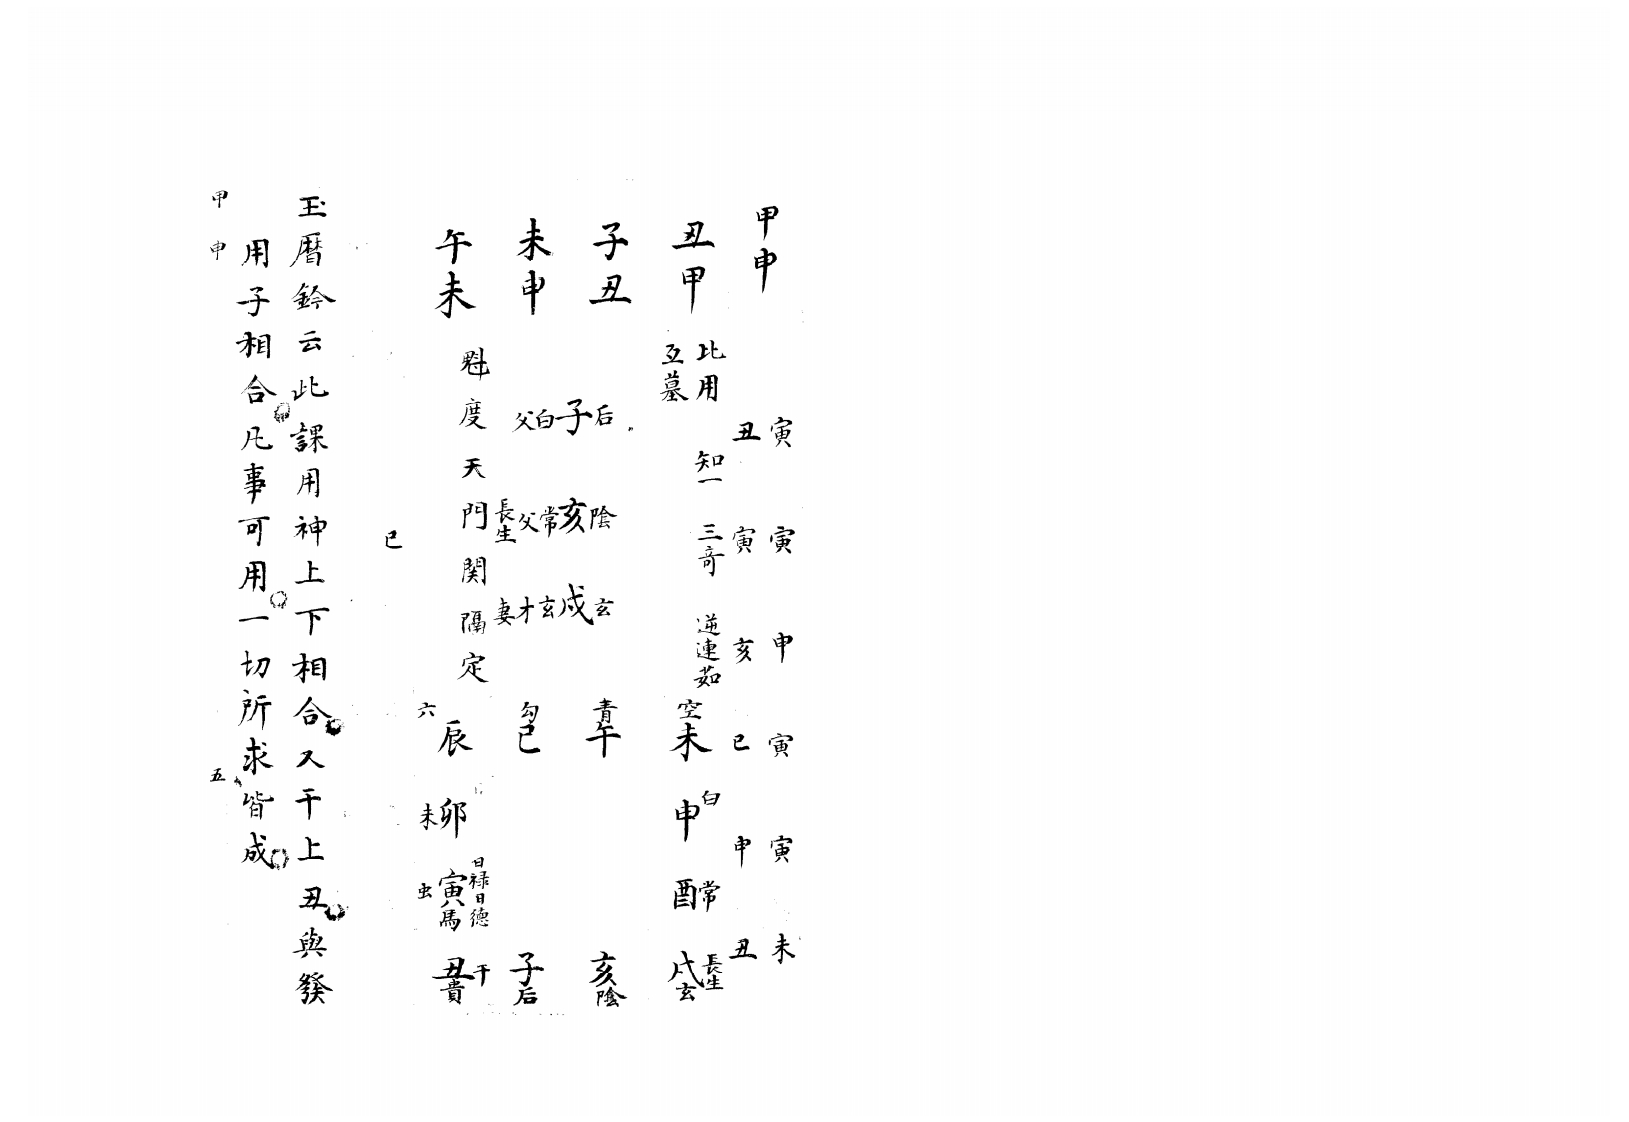 甲申
寅 寅 申 寅 寅 未
丑 寅 亥 巳 申 丑
丑甲
比用 知一 三奇 逆連茹
互墓
空未 申白 酉常 戌玄長生
子丑
后子白父
陰亥常父長生
玄戌玄才妻
青午
亥陰
未申
勾巳
子后
午未
魁度天門関隔定
六辰
未卯
日禄日德
虫寅馬
丑貴干
巳
玉暦鈐云此課用神上下相合又干上丑與發
用子相合凡事可用一切所求皆成
甲申 五